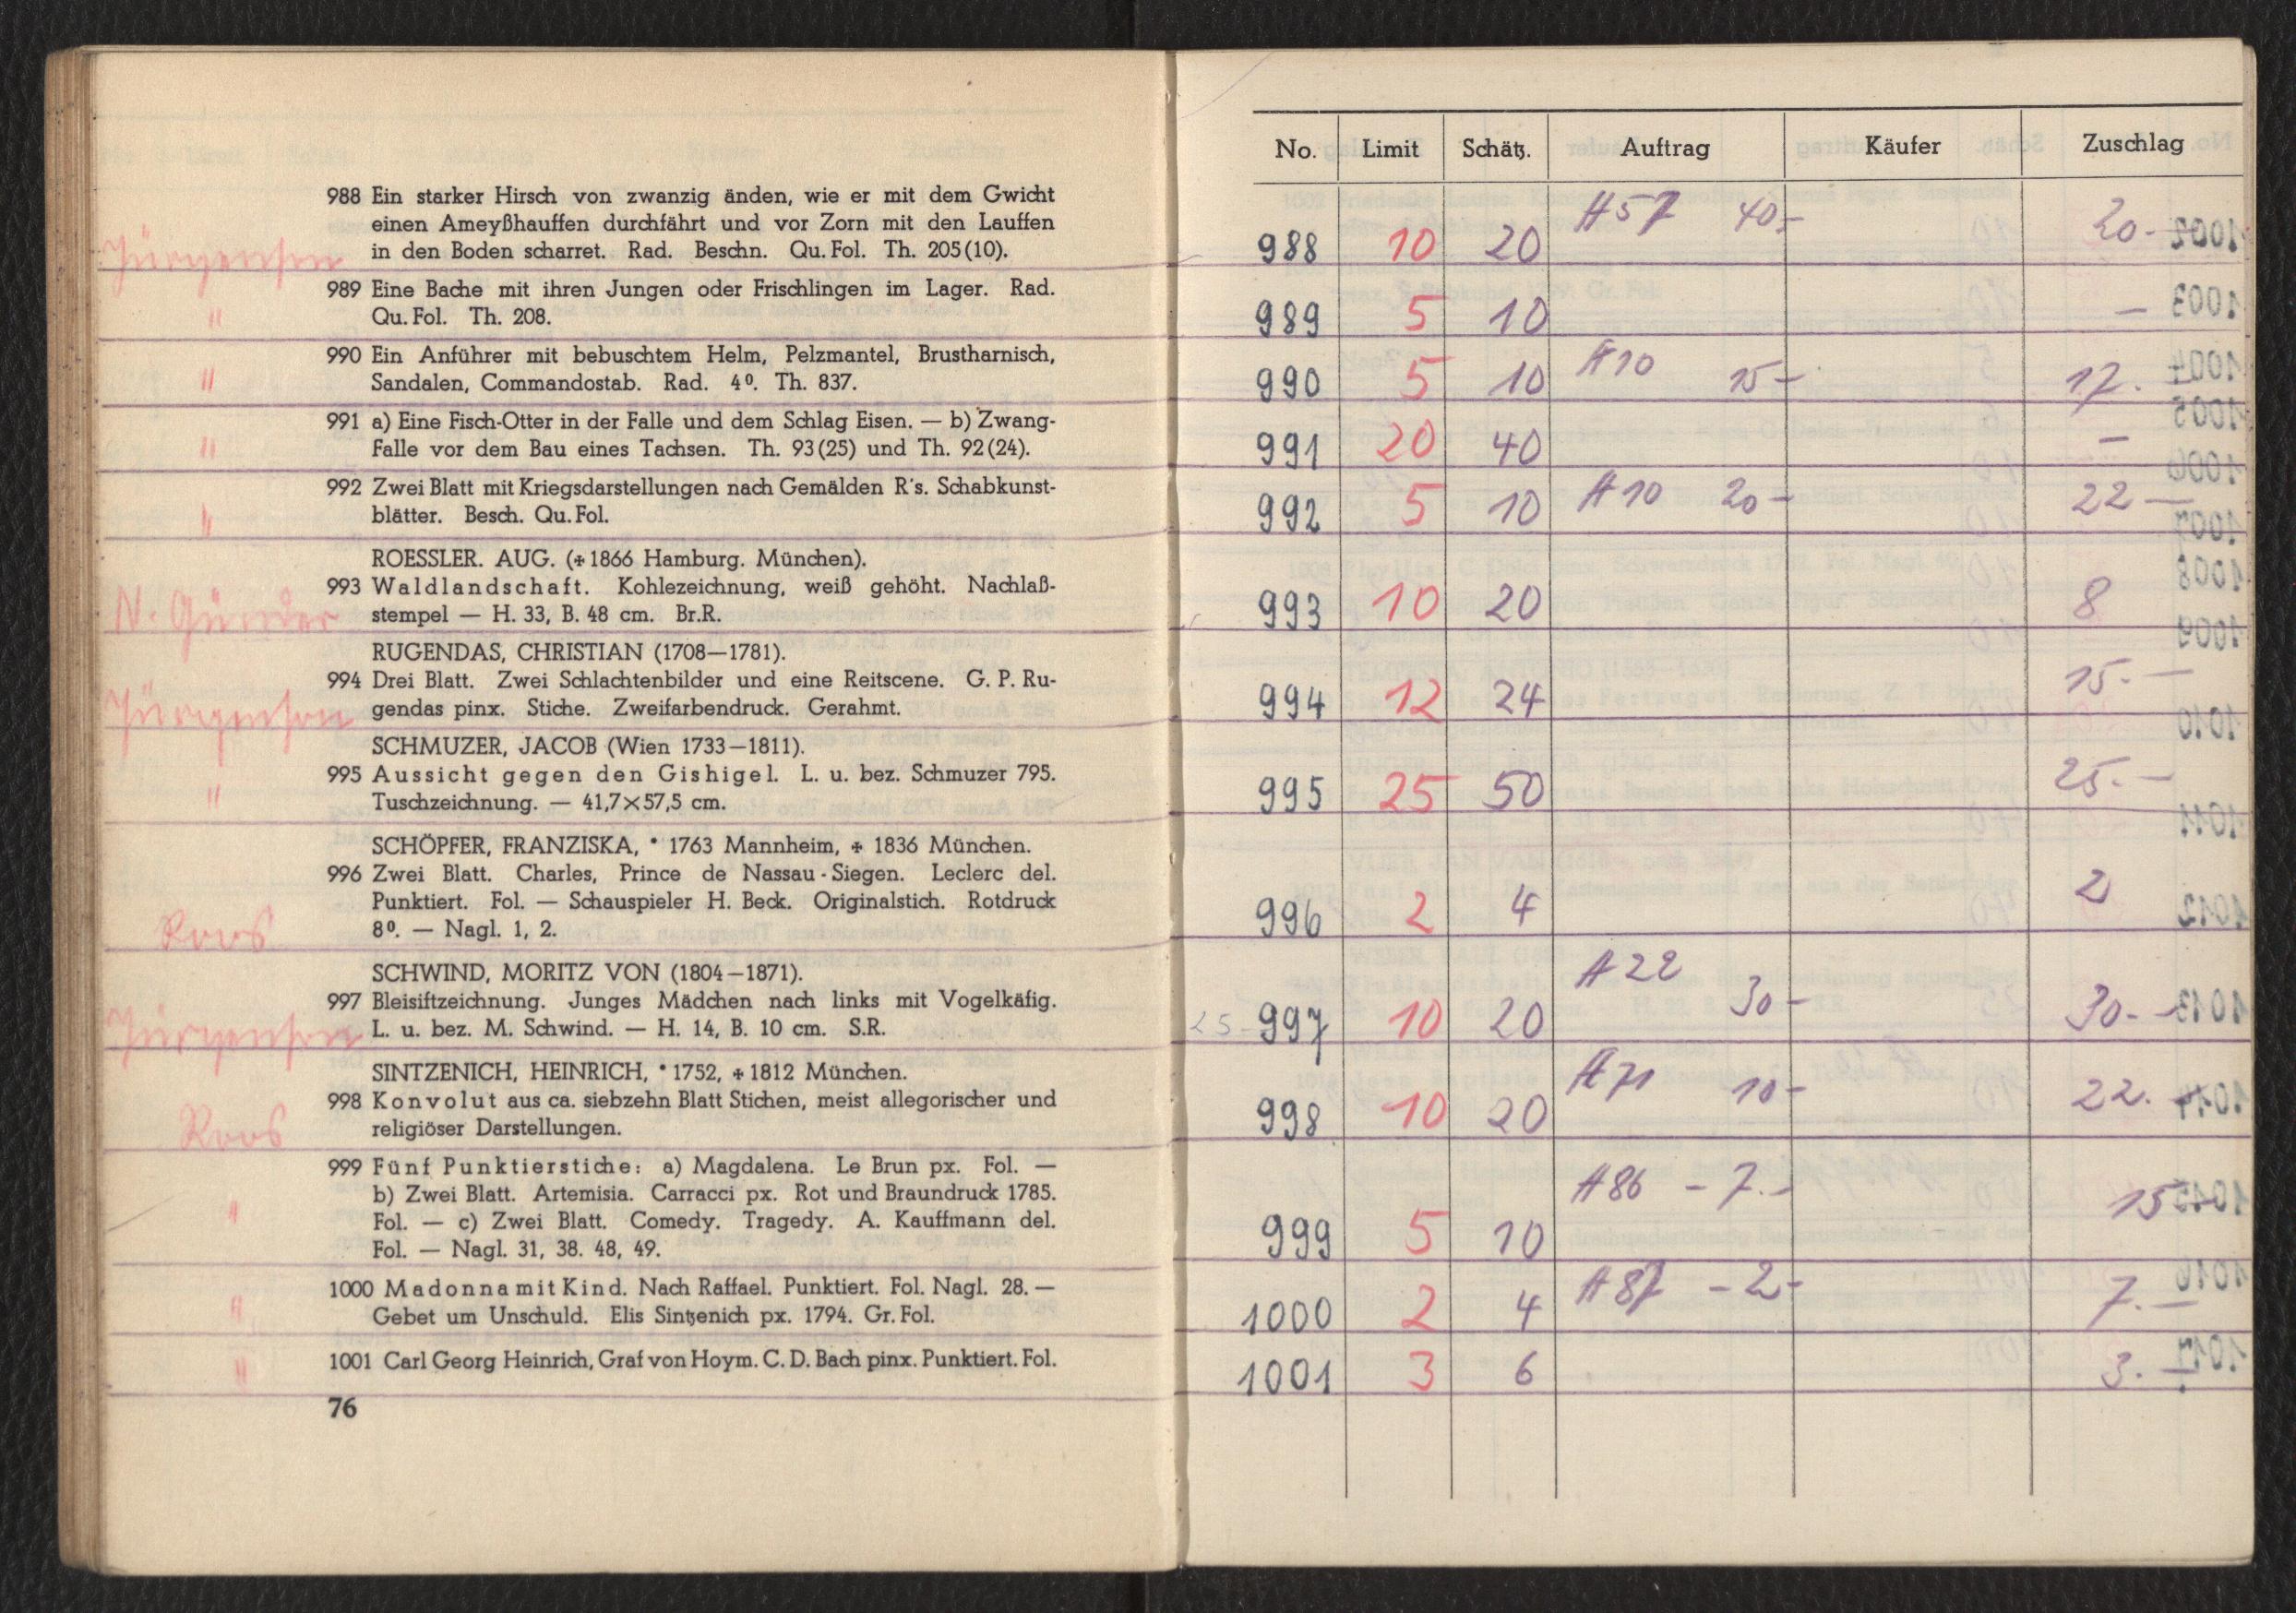 988 Ein starker Hirsch von zwanzig änden, wie er mit dem Gwicht
einen Ameyßhauffen durchfährt und vor Zorn mit den Lauffen
Jürgensen in den Boden scharret. Rad. Beschn. Qu. Fol. Th. 205 (10).
989 Eine Bache mit ihren Jungen oder Frischlingen im Lager. Rad.
" Qu. Fol. Th. 208.
990 Ein Anführer mit bebuschtem Helm, Pelzmantel, Brustharnisch,
" Sandalen, Commandostab. Rad. 4⁰. Th. 837.
991 a) Eine Fisch-Otter in der Falle und dem Schlag Eisen. — b) Zwang-
" Falle vor dem Bau eines Tachsen. Th. 93 (25) und Th. 92 (24).
992 Zwei Blatt mit Kriegsdarstellungen nach Gemälden R's. Schabkunst-
" blätter. Besch. Qu. Fol.
ROESSLER. AUG. (✠ 1866 Hamburg. München).
993 Waldlandschaft. Kohlezeichnung, weiß gehöht. Nachlaß-
N. Günder stempel — H. 33, B. 48 cm. Br.R.
RUGENDAS, CHRISTIAN (1708—1781).
994 Drei Blatt. Zwei Schlachtenbilder und eine Reitscene. G. P. Ru-
Jürgensen gendas pinx. Stiche. Zweifarbendruck. Gerahmt.
SCHMUZER, JACOB (Wien 1733—1811).
995 Aussicht gegen den Gishigel. L. u. bez. Schmuzer 795.
" Tuschzeichnung. — 41,7×57,5 cm.
SCHÖPFER, FRANZISKA, * 1763 Mannheim, ✠ 1836 München.
996 Zwei Blatt. Charles, Prince de Nassau-Siegen. Leclerc del.
Punktiert. Fol. — Schauspieler H. Beck. Originalstich. Rotdruck
Roos 8⁰. — Nagl. 1, 2.
SCHWIND, MORITZ VON (1804—1871).
997 Bleisiftzeichnung. Junges Mädchen nach links mit Vogelkäfig.
Jürgensen L. u. bez. M. Schwind. — H. 14, B. 10 cm. S.R.
SINTZENICH, HEINRICH, * 1752, ✠ 1812 München.
998 Konvolut aus ca. siebzehn Blatt Stichen, meist allegorischer und
Roos religiöser Darstellungen.
999 Fünf Punktierstiche: a) Magdalena. Le Brun px. Fol. —
b) Zwei Blatt. Artemisia. Carracci px. Rot und Braundruck 1785.
" Fol. — c) Zwei Blatt. Comedy. Tragedy. A. Kauffmann del.
Fol. — Nagl. 31, 38. 48, 49.
1000 Madonna mit Kind. Nach Raffael. Punktiert. Fol. Nagl. 28. —
" Gebet um Unschuld. Elis Sintzenich px. 1794. Gr. Fol.
" 1001 Carl Georg Heinrich, Graf von Hoym. C. D. Bach pinx. Punktiert. Fol.
76
No. Limit Schätz. Auftrag Käufer Zuschlag
988 10 20 A57 40.- 20.-
989 5 10 —
990 5 10 A10 15- 17.
991 20 40 —
992 5 10 A10 20- 22—
993 10 20 8
994 12 24 15.—
995 25 50 25.—
996 2 4 2
25- 997 10 20 A22 30- 30.-
998 10 20 A71 10- 22.
999 5 10 A86 - 7.- 15
1000 2 4 A87 - 2- 7.—
1001 3 6 3.—